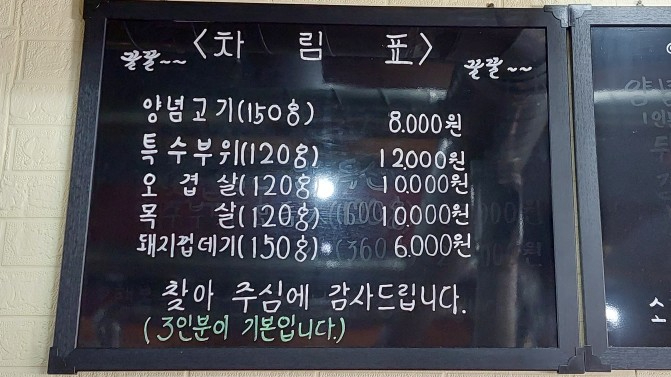 <차 림 표>
꿀꿀~~ 꿀꿀~~
양념고기(150g) 8.000원
특수부위(120g) 12.000원
오 겹 살(120g) 10.000원
목 살(120g) 10.000원
돼지껍데기(150g) 6.000원
찾아 주심에 감사드립니다.
(3인분이 기본입니다.)
소